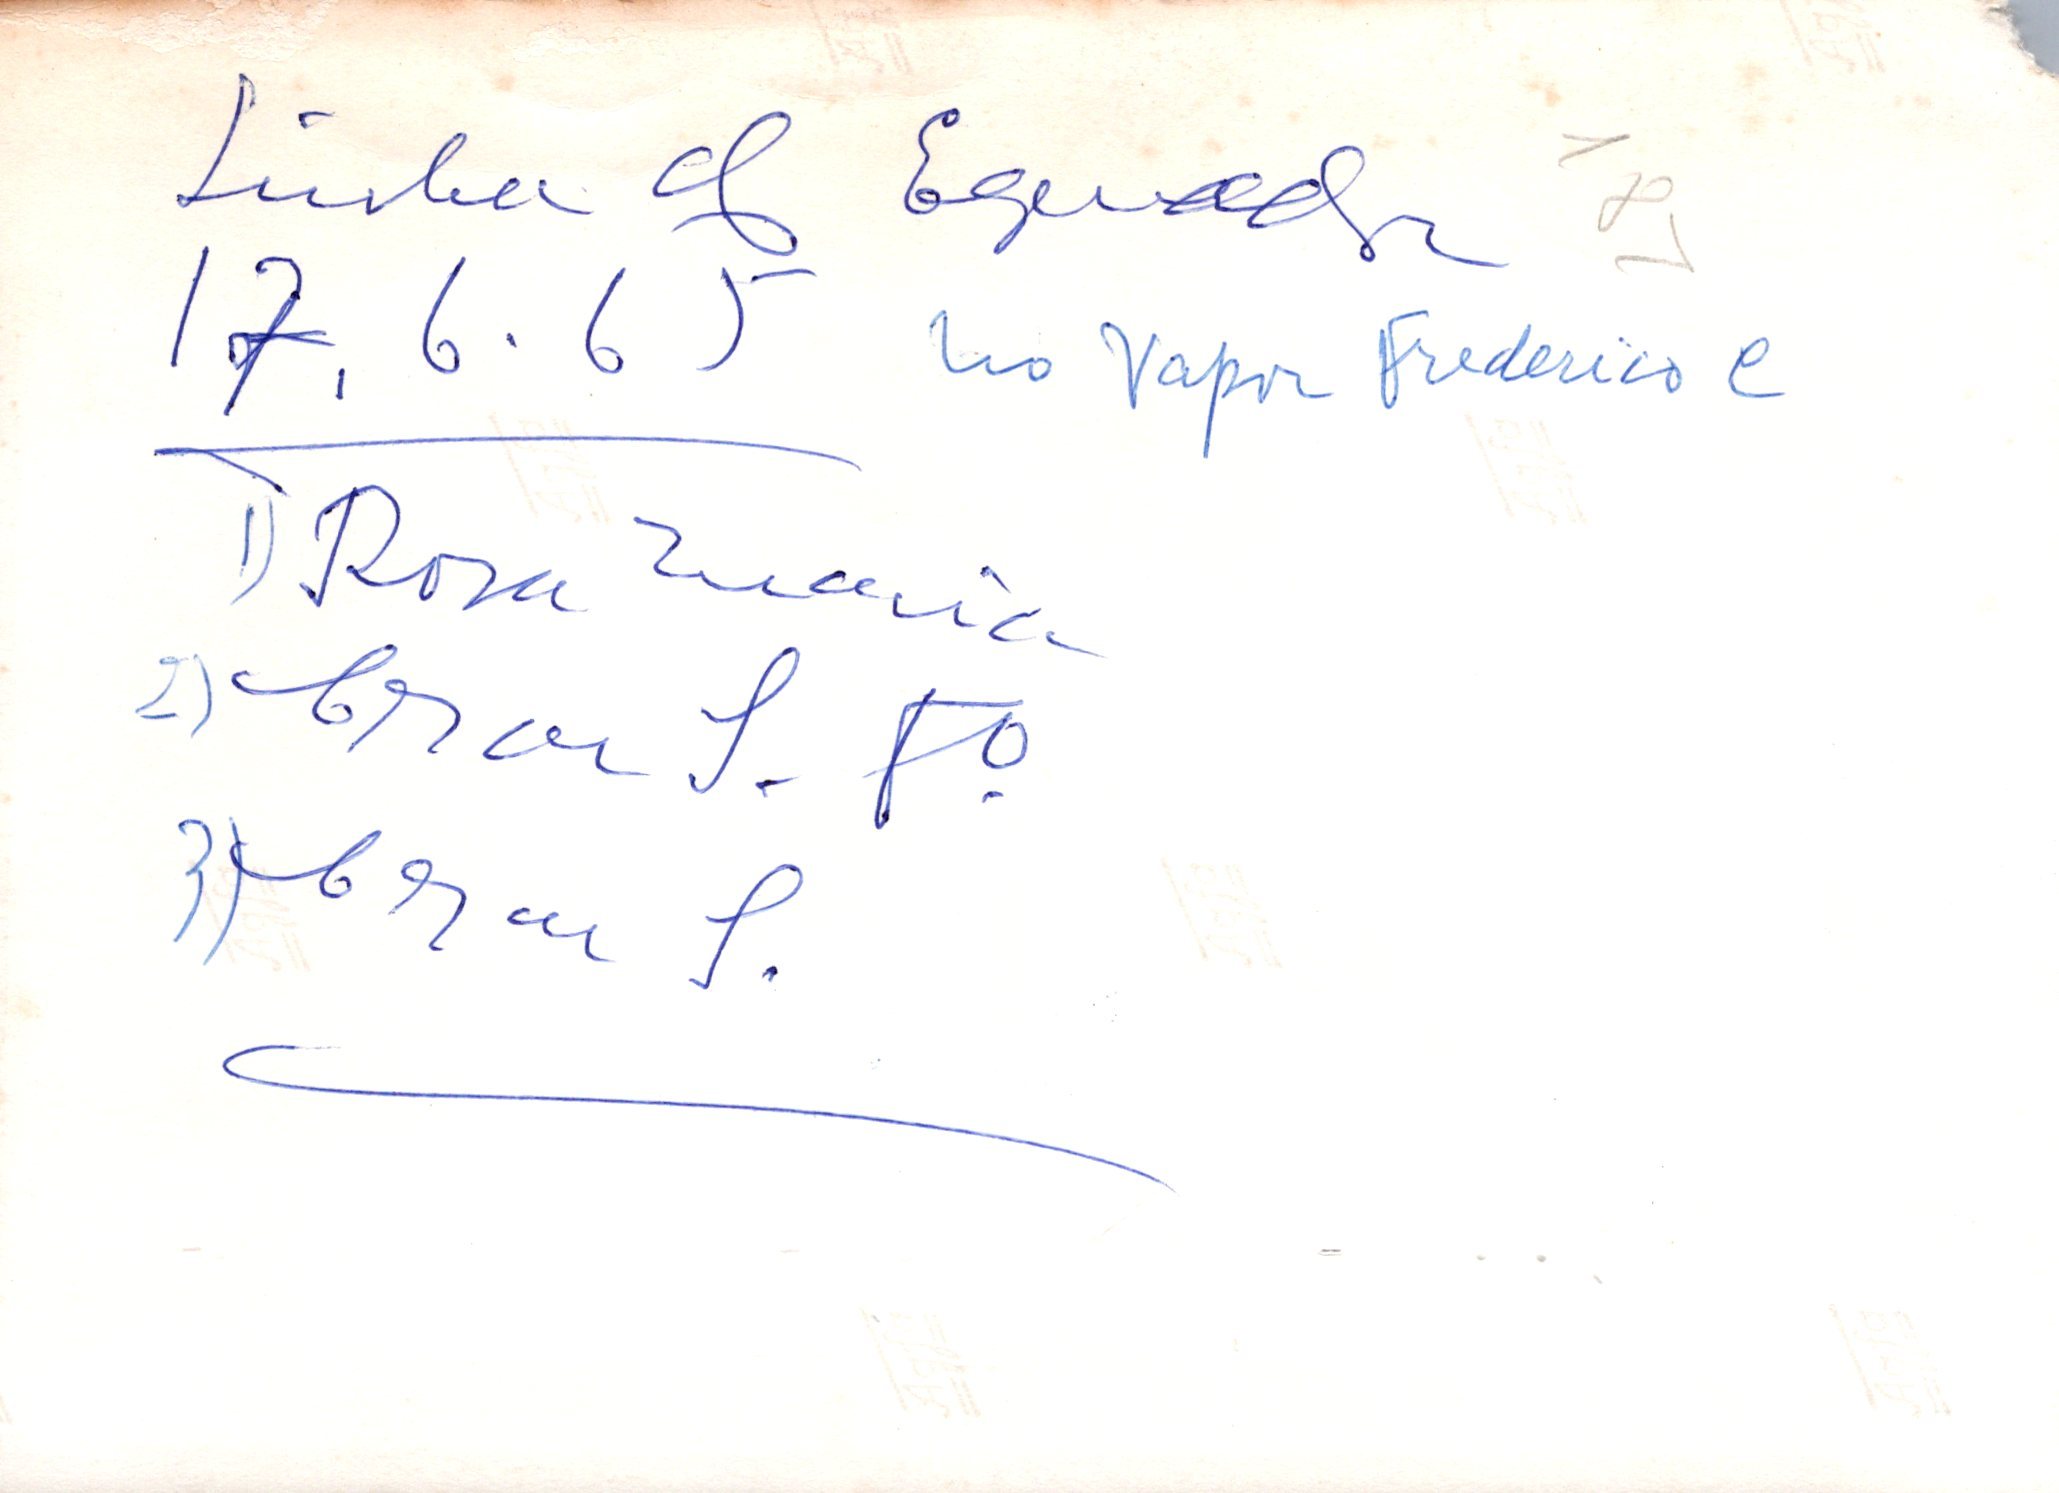 Linha do Equador
17.6.65 no Vapor Frederico C
1) Rosa Maria
2) S. Fo.
3) S.